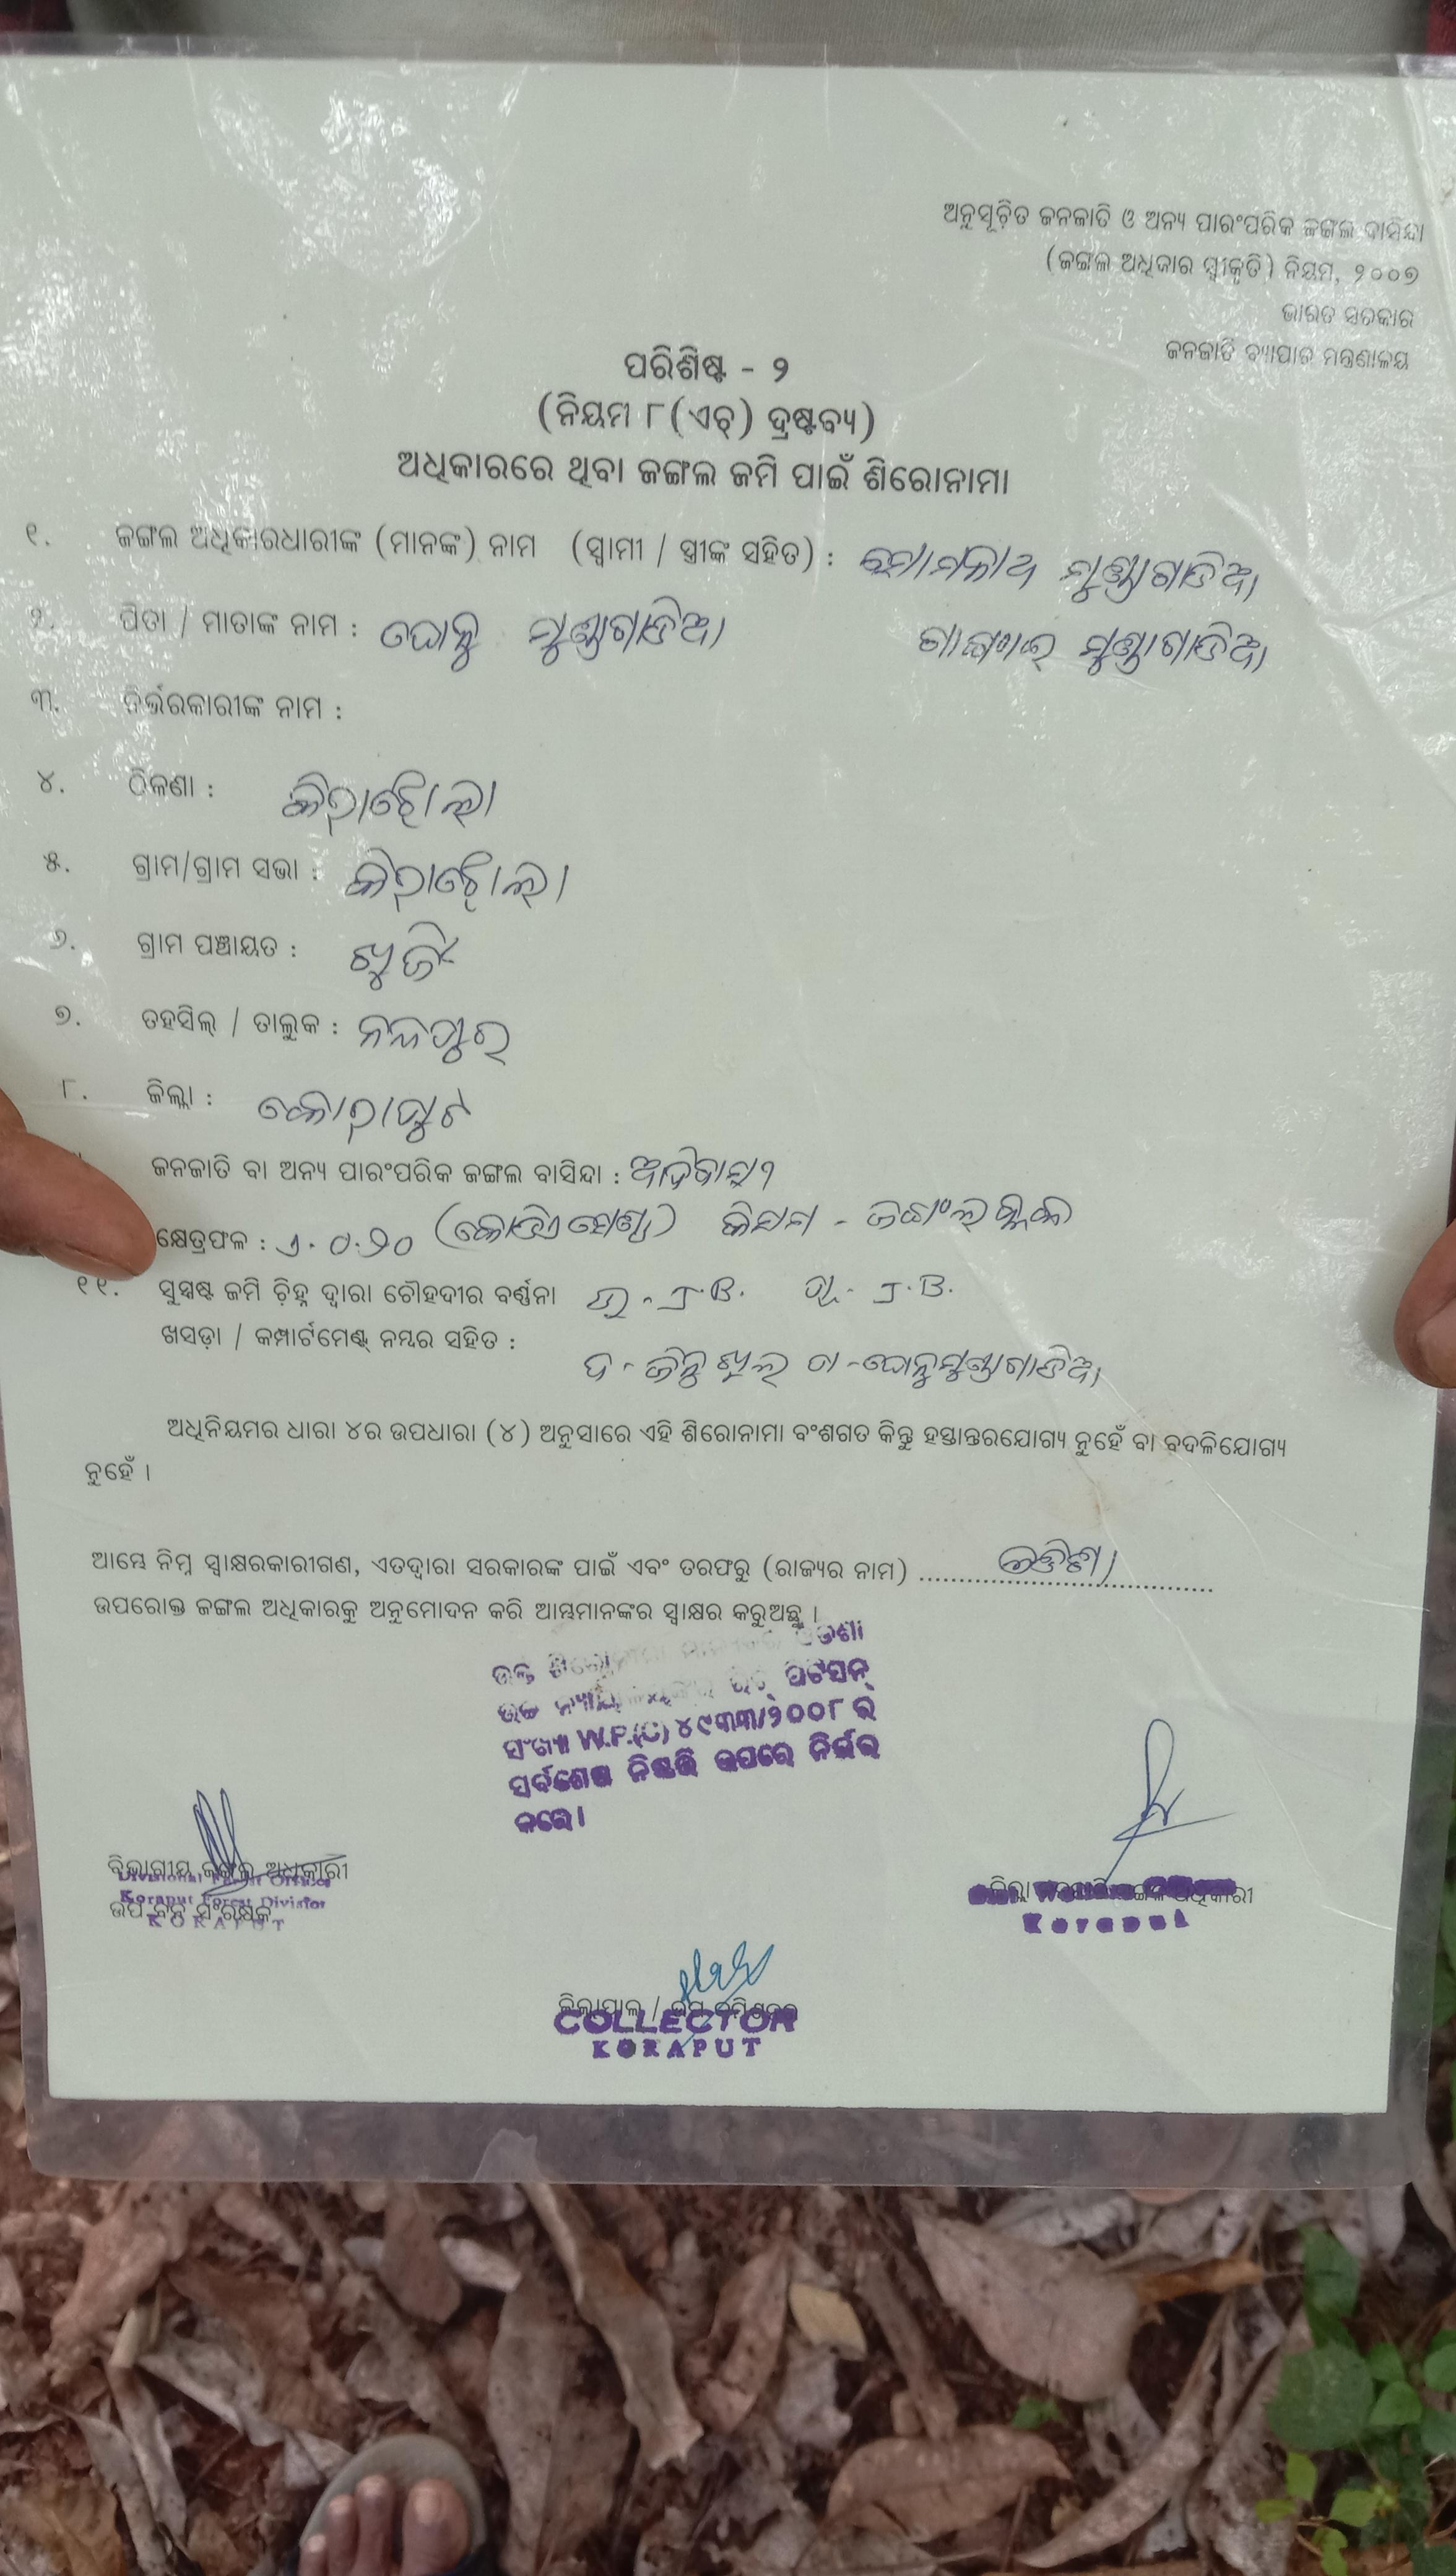 ଅନୁସୂଚିତ ଜନଜାତି ଓ ଅନ୍ୟ ପାରଂପରିକ ଜଙ୍ଗଲ ବାସିନ୍ଦା
(ଜଙ୍ଗଲ ଅଧିକାର ସ୍ୱୀକୃତି) ନିୟମ, ୨୦୦୭
ଭାରତ ସରକାର
ଜନଜାତି ବ୍ୟାପାର ମନ୍ତ୍ରଣାଳୟ
ପରିଶିଷ୍ଟ - ୨
(ନିୟମ ୮(ଏଚ୍) ଦ୍ରଷ୍ଟବ୍ୟ)
ଅଧିକାରରେ ଥିବା ଜଙ୍ଗଲ ଜମି ପାଇଁ ଶିରୋନାମା
୧. ଜଙ୍ଗଲ ଅଧିକାରଧାରୀଙ୍କ (ମାନଙ୍କ) ନାମ (ସ୍ୱାମୀ / ସ୍ତ୍ରୀଙ୍କ ସହିତ) : ସୋମନାଥ ମୁଣ୍ଡାଗାଡିଆ
୨. ପିତା / ମାତାଙ୍କ ନାମ : ଘେନୁ ମୁଣ୍ଡାଗାଡିଆ ମୁଣ୍ଡାଗାଡିଆ
୩. ନିର୍ଭରକାରୀଙ୍କ ନାମ :
୪. ଠିକଣା :
୫. ଗ୍ରାମ/ଗ୍ରାମ ସଭା :
୬. ଗ୍ରାମ ପଞ୍ଚାୟତ :
୭. ତହସିଲ୍ / ତାଲୁକ : ନନ୍ଦପୁର
୮. ଜିଲ୍ଲା : କୋରାପୁଟ
ଜନଜାତି ବା ଅନ୍ୟ ପାରଂପରିକ ଜଙ୍ଗଲ ବାସିନ୍ଦା : ଆଦିବାସୀ
କ୍ଷେତ୍ରଫଳ : ୧.୦.୨୦ କିସମ -
୧୧. ସୁସ୍ପଷ୍ଟ ଜମି ଚିହ୍ନ ଦ୍ୱାରା ଚୌହଦୀର ବର୍ଣ୍ଣନା ଉ - J.B. ପୂ - J.B.
ଖସଡ଼ା / କମ୍ପାର୍ଟମେଣ୍ଟ୍ ନମ୍ବର ସହିତ :
ଦ - ଘେନୁ ମୁଣ୍ଡାଗାଡିଆ
ଅଧିନିୟମର ଧାରା ୪ର ଉପଧାରା (୪) ଅନୁସାରେ ଏହି ଶିରୋନାମା ବଂଶଗତ କିନ୍ତୁ ହସ୍ତାନ୍ତରଯୋଗ୍ୟ ନୁହେଁ ବା ବଦଳିଯୋଗ୍ୟ
ନୁହେଁ ।
ଆମ୍ଭେ ନିମ୍ନ ସ୍ୱାକ୍ଷରକାରୀଗଣ, ଏତଦ୍ୱାରା ସରକାରଙ୍କ ପାଇଁ ଏବଂ ତରଫରୁ (ରାଜ୍ୟର ନାମ) ଓଡିଶା
ଉପରୋକ୍ତ ଜଙ୍ଗଲ ଅଧିକାରକୁ ଅନୁମୋଦନ କରି ଆମ୍ଭମାନଙ୍କର ସ୍ୱାକ୍ଷର କରୁଅଛୁ ।
ଉକ୍ତ ଓଡିଶା
ଉଚ୍ଚ ରିଟ୍ ପିଟିସନ୍
ସଂଖ୍ୟା W.P.(C) ୪୯୩୩/୨୦୦୮ ର
ସର୍ବଶେଷ ନିଷ୍ପତ୍ତି ଉପରେ ନିର୍ଭର
କରେ।
ବିଭାଗୀୟ ଜଙ୍ଗଲ ଅଧିକାରୀ
Divisional Forest Officer
Koraput Forest Division
ଉପ ବନ ସଂରକ୍ଷକ
KORAPUT
ଜିଲ୍ଲା ଅଧିକାରୀ
Koraput
ଜିଲ୍ଲାପାଳ /
COLLECTOR
KORAPUT